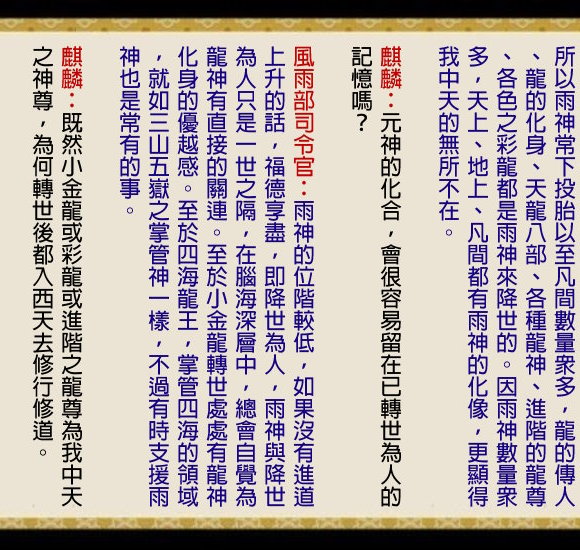 所以雨神常下投胎以至凡間數量衆多，龍的傳人
、龍的化身、天龍八部、各種龍神、進階的龍尊
、各色之彩龍都是雨神來降世的。因雨神數量衆
多，天上、地上、凡間都有雨神的化像，更顯得
我中天的無所不在。
麒麟：元神的化合，會很容易留在已轉世為人的
記憶嗎？
風雨部司令官：雨神的位階較低，如果沒有進道
上升的話，福德享盡，即降世為人，雨神與降世
為人只是一世之隔，在腦海深層中，總會自覺為
龍神有直接的關連。至於小金龍轉世處處有龍神
化身的優越感。至於四海龍王，掌管四海的領域
，就如三山五嶽之掌管神一樣，不過有時支援雨
神也是常有的事。
麒麟：既然小金龍或彩龍或進階之龍尊為我中天
之神尊，為何轉世後都入西天去修行修道。